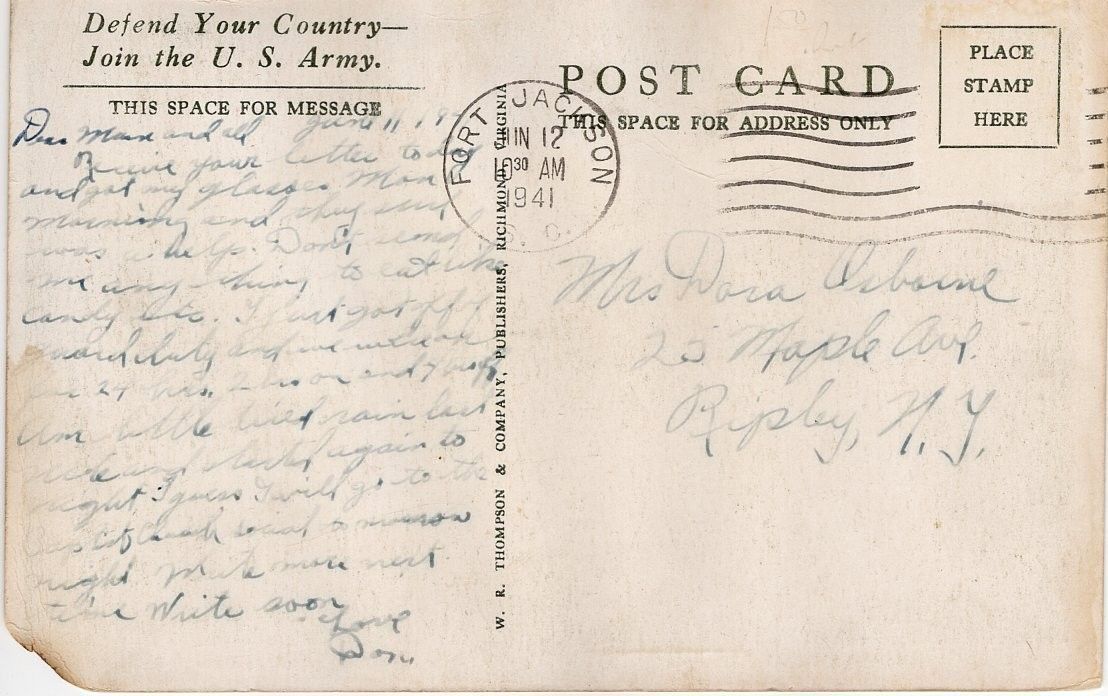 Defend Your Country—
Join the U. S. Army.
THIS SPACE FOR MESSAGE
June 11, 19
Dear Mom and all
Receive your letter today
and got my glasses Mon
morning and they sure
was a help. Don't send
me any thing to eat like
candy etc. I just got off
guard duty and we
for 24 hrs. 2 hrs on and 4 hrs off
Am little tired rain last
nite and started again to
night I guess I will go to the
Baptist Church social tomorrow
night Write more next
time Write soon
Love
Don.
POST CARD
THIS SPACE FOR ADDRESS ONLY
PLACE
STAMP
HERE
FORT JACKSON
JUN 12
10 30 AM
1941
S. C.
Mrs Dora Osborne
25 Maple Ave.
Ripley, N.Y.
W. R. THOMPSON & COMPANY, PUBLISHERS, RICHMOND, VIRGINIA